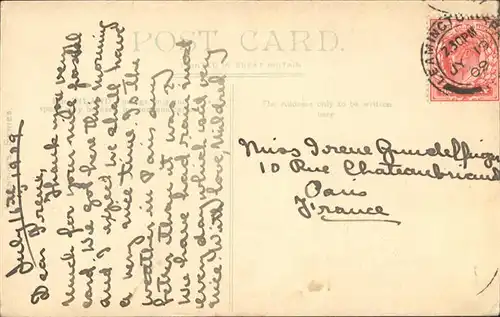 POST CARD.
The address only to be written
here
LEAMINGTON
7.30 PM
JY 12
09
July 12th, 1909
Dear Irene,
Thank you very
much for your nice postal
card. We got here this morning
and I expect we shall have
a very nice time. Is the
weather in Paris any
better than it was as
We have had rain most
every day which isn't very
nice. With love, Mildred
Miss Irene Gundelfinger
10 Rue Chateaubriand
Paris
France